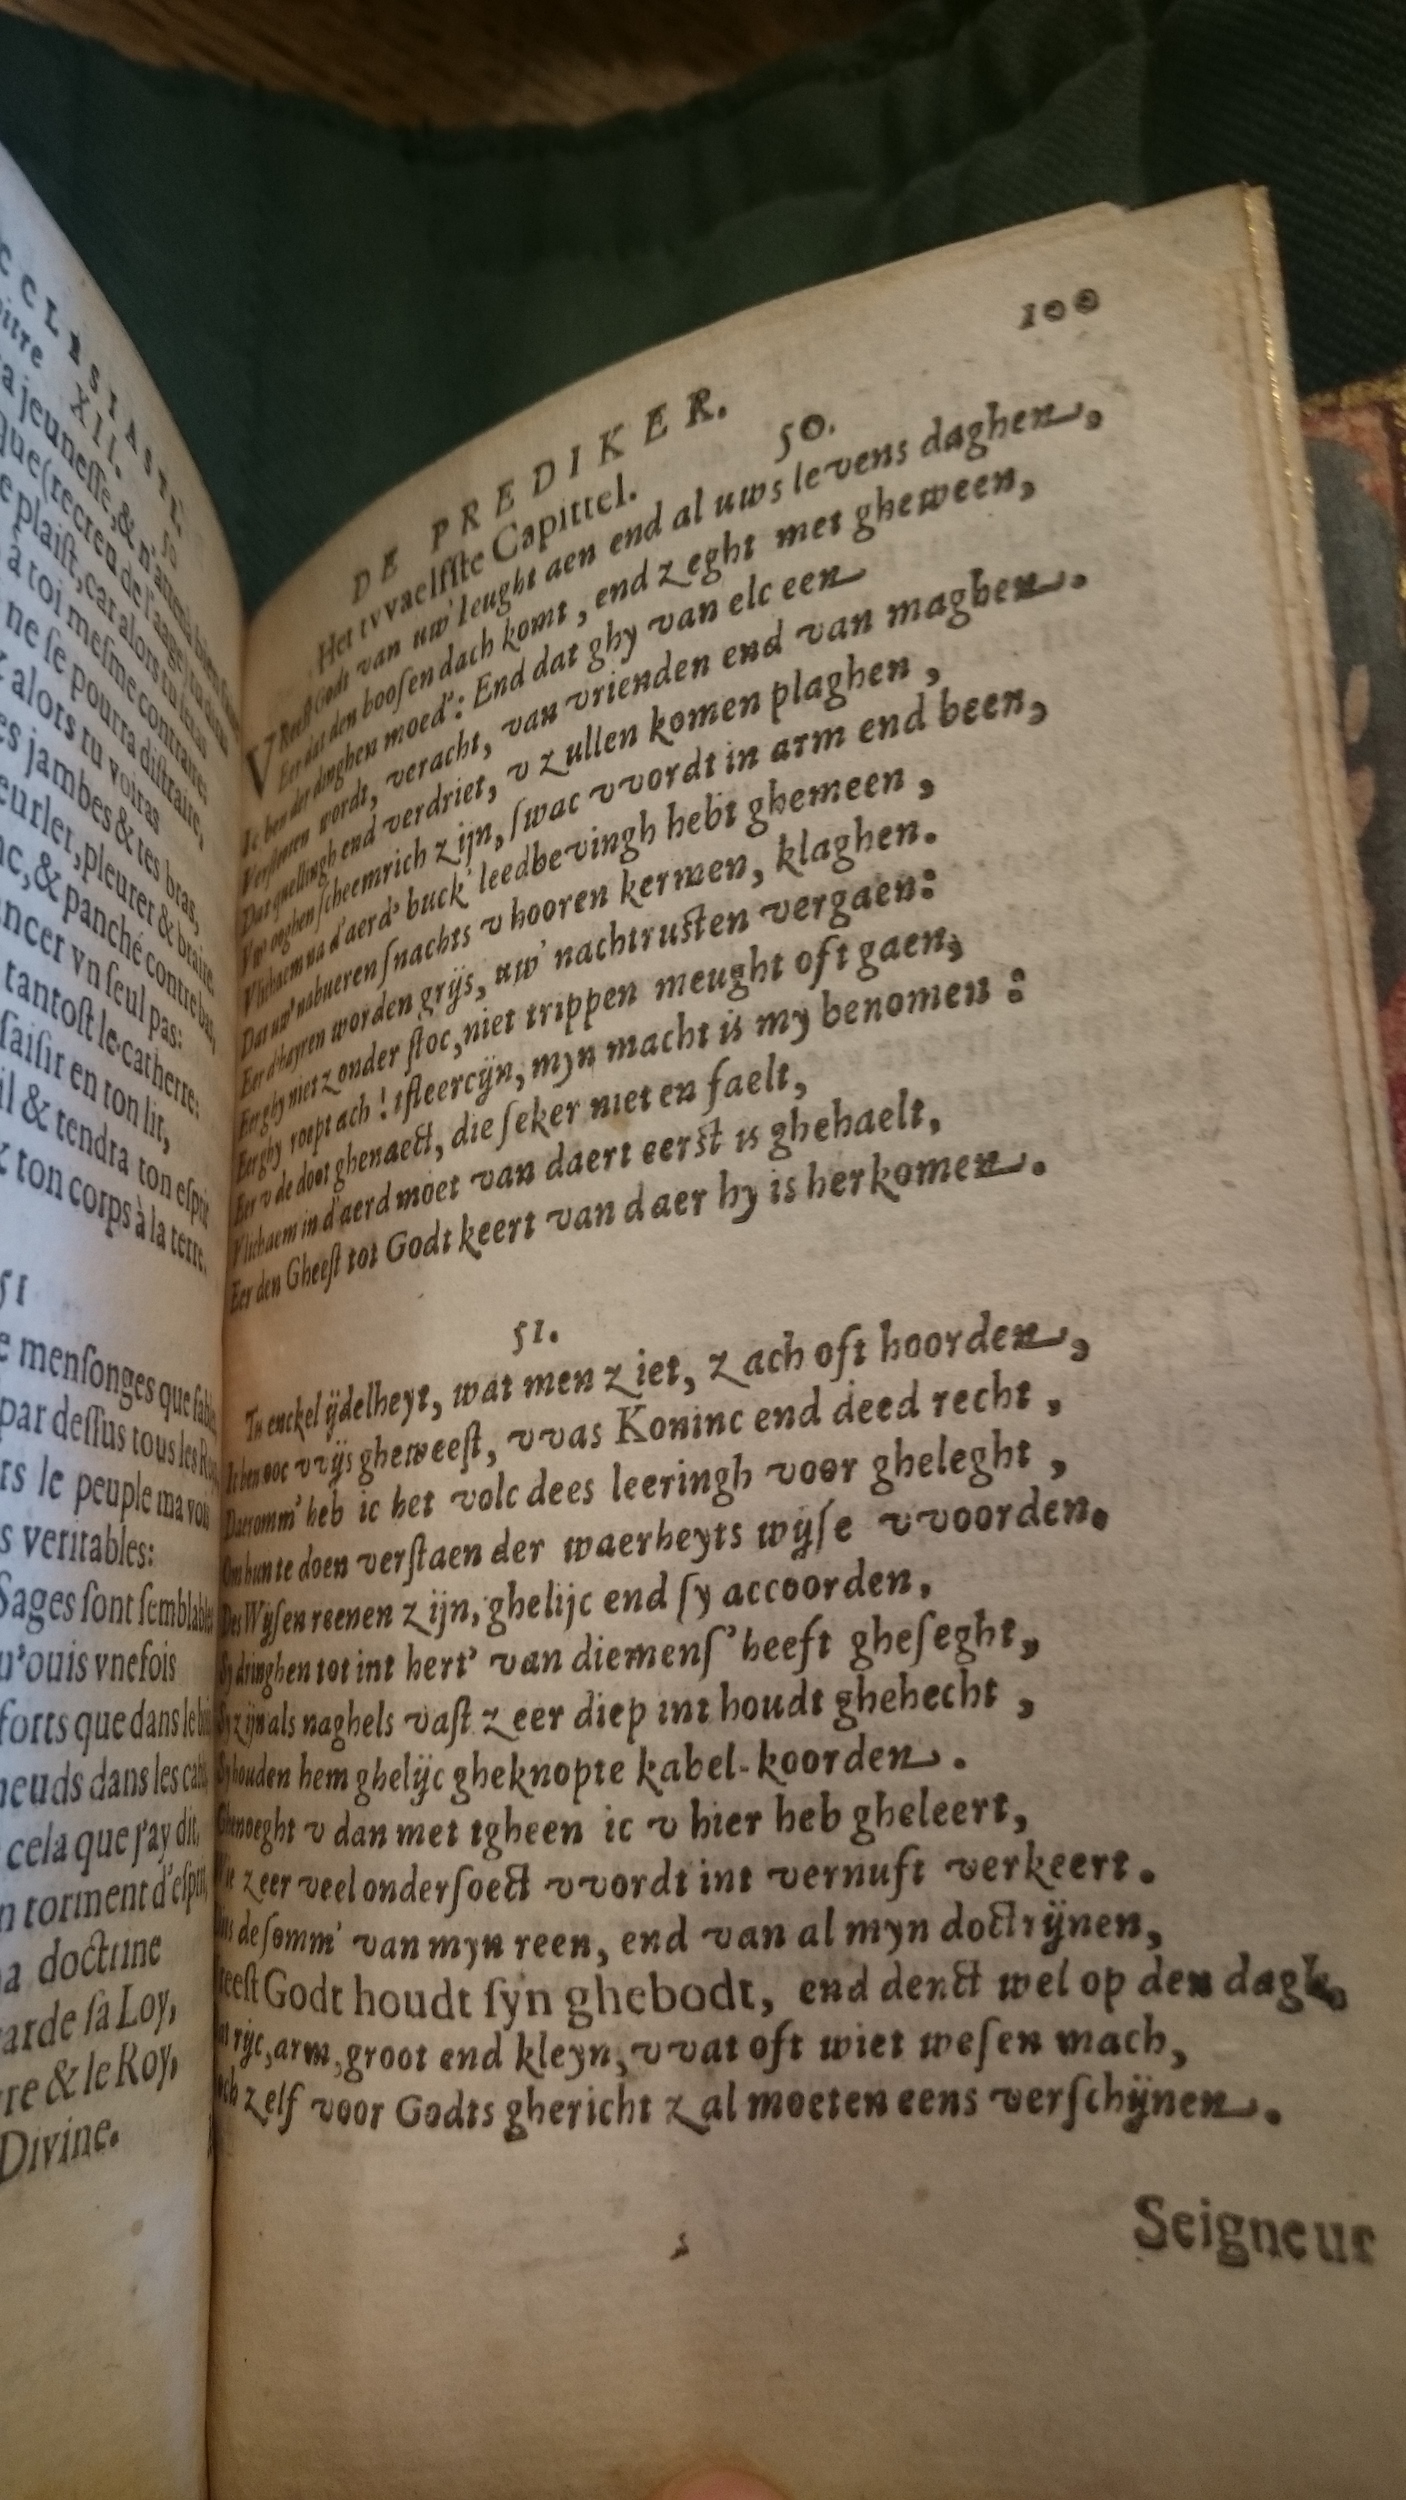 CCLESIASTE.
itre XII. 50
a jeuneſſe, &
que (recreu de l'aage) tu
e plaiſt, car alors tu
à toi meſme contraire,
ne ſe pourra diſtraire,
alors tu voiras
es jambes & tes bras,
eurler, pleurer & braire.
c, & panché contrebas,
ncer vn ſeul pas:
tantoſt le catherre:
ſaiſir en ton lit,
il & tendra ton eſprit
ton corps à la terre.
51
e menſonges que
par deſſus tous les
rs le peuple ma voix
s veritables:
Sages ſont ſemblables
u'ouis vnefois
forts que dans le
neuds dans les
cela que j'ay dit,
n torment d'eſprit,
a doctrine
arde ſa Loy,
re & le Roy,
Divine.
100
DE PREDIKER.
Het tvvaelfſte Capittel. 50.
VReeſt Godt van uw' Ieught aen end al uws levens daghen,
Eer dat den booſen dach komt, end zeght met gheween,
Ic ben der dinghen moed': End dat ghy van elc een
wordt, veracht, van vrienden end van maghen.
Dat quellingh end verdriet, v zullen komen plaghen,
Vw' ooghen ſcheemrich zijn, ſwac vvordt in arm end been,
Vlichaem na d'aerd' buck' leedbevingh hebt ghemeen,
Dat uw' nabueren ſnachts v hooren kermen, klaghen.
Eer d'hayren worden grijs, uw' nachtruſten vergaen:
Eer ghy niet zonder ſtoc, niet trippen meught oft gaen,
Eer ghy roept ach! tfleercijn, myn macht is my benomen:
Eer v de doot ghenaect, die ſeker niet en faelt,
Vlichaem in d'aerd moet van daert eerſt is ghehaelt,
Eer den Gheeſt tot Godt keert van daer hy is herkomen.
51.
Tis enckel ijdelheyt, wat men ziet, zach oft hoorden,
Ic ben ooc vvijs gheweeſt, vvas Koninc end deed recht,
Daeromm' heb ic het volc dees leeringh voor gheleght,
Om hun te doen verſtaen der waerheyts wyſe vvoorden.
Des Wyſen reenen zijn, ghelijc end ſy accoorden,
Sy dringhen tot int hert' van diemenſ' heeft gheſeght,
Sy zijn als naghels vaſt zeer diep int houdt ghehecht,
Sy houden hem ghelijc gheknopte kabel-koorden.
Ghenoeght v dan met tgheen ic v hier heb gheleert,
zeer veel onderſoect vvordt int vernuft verkeert.
de ſomm' van myn reen, end van al myn doctrijnen,
reeſt Godt houdt ſyn ghebodt, end denct wel op den dagh,
rijc, arm, groot end kleyn, vvat oft wiet weſen mach,
zelf voor Godts ghericht zal moeten eens verſchijnen.
Seigneur